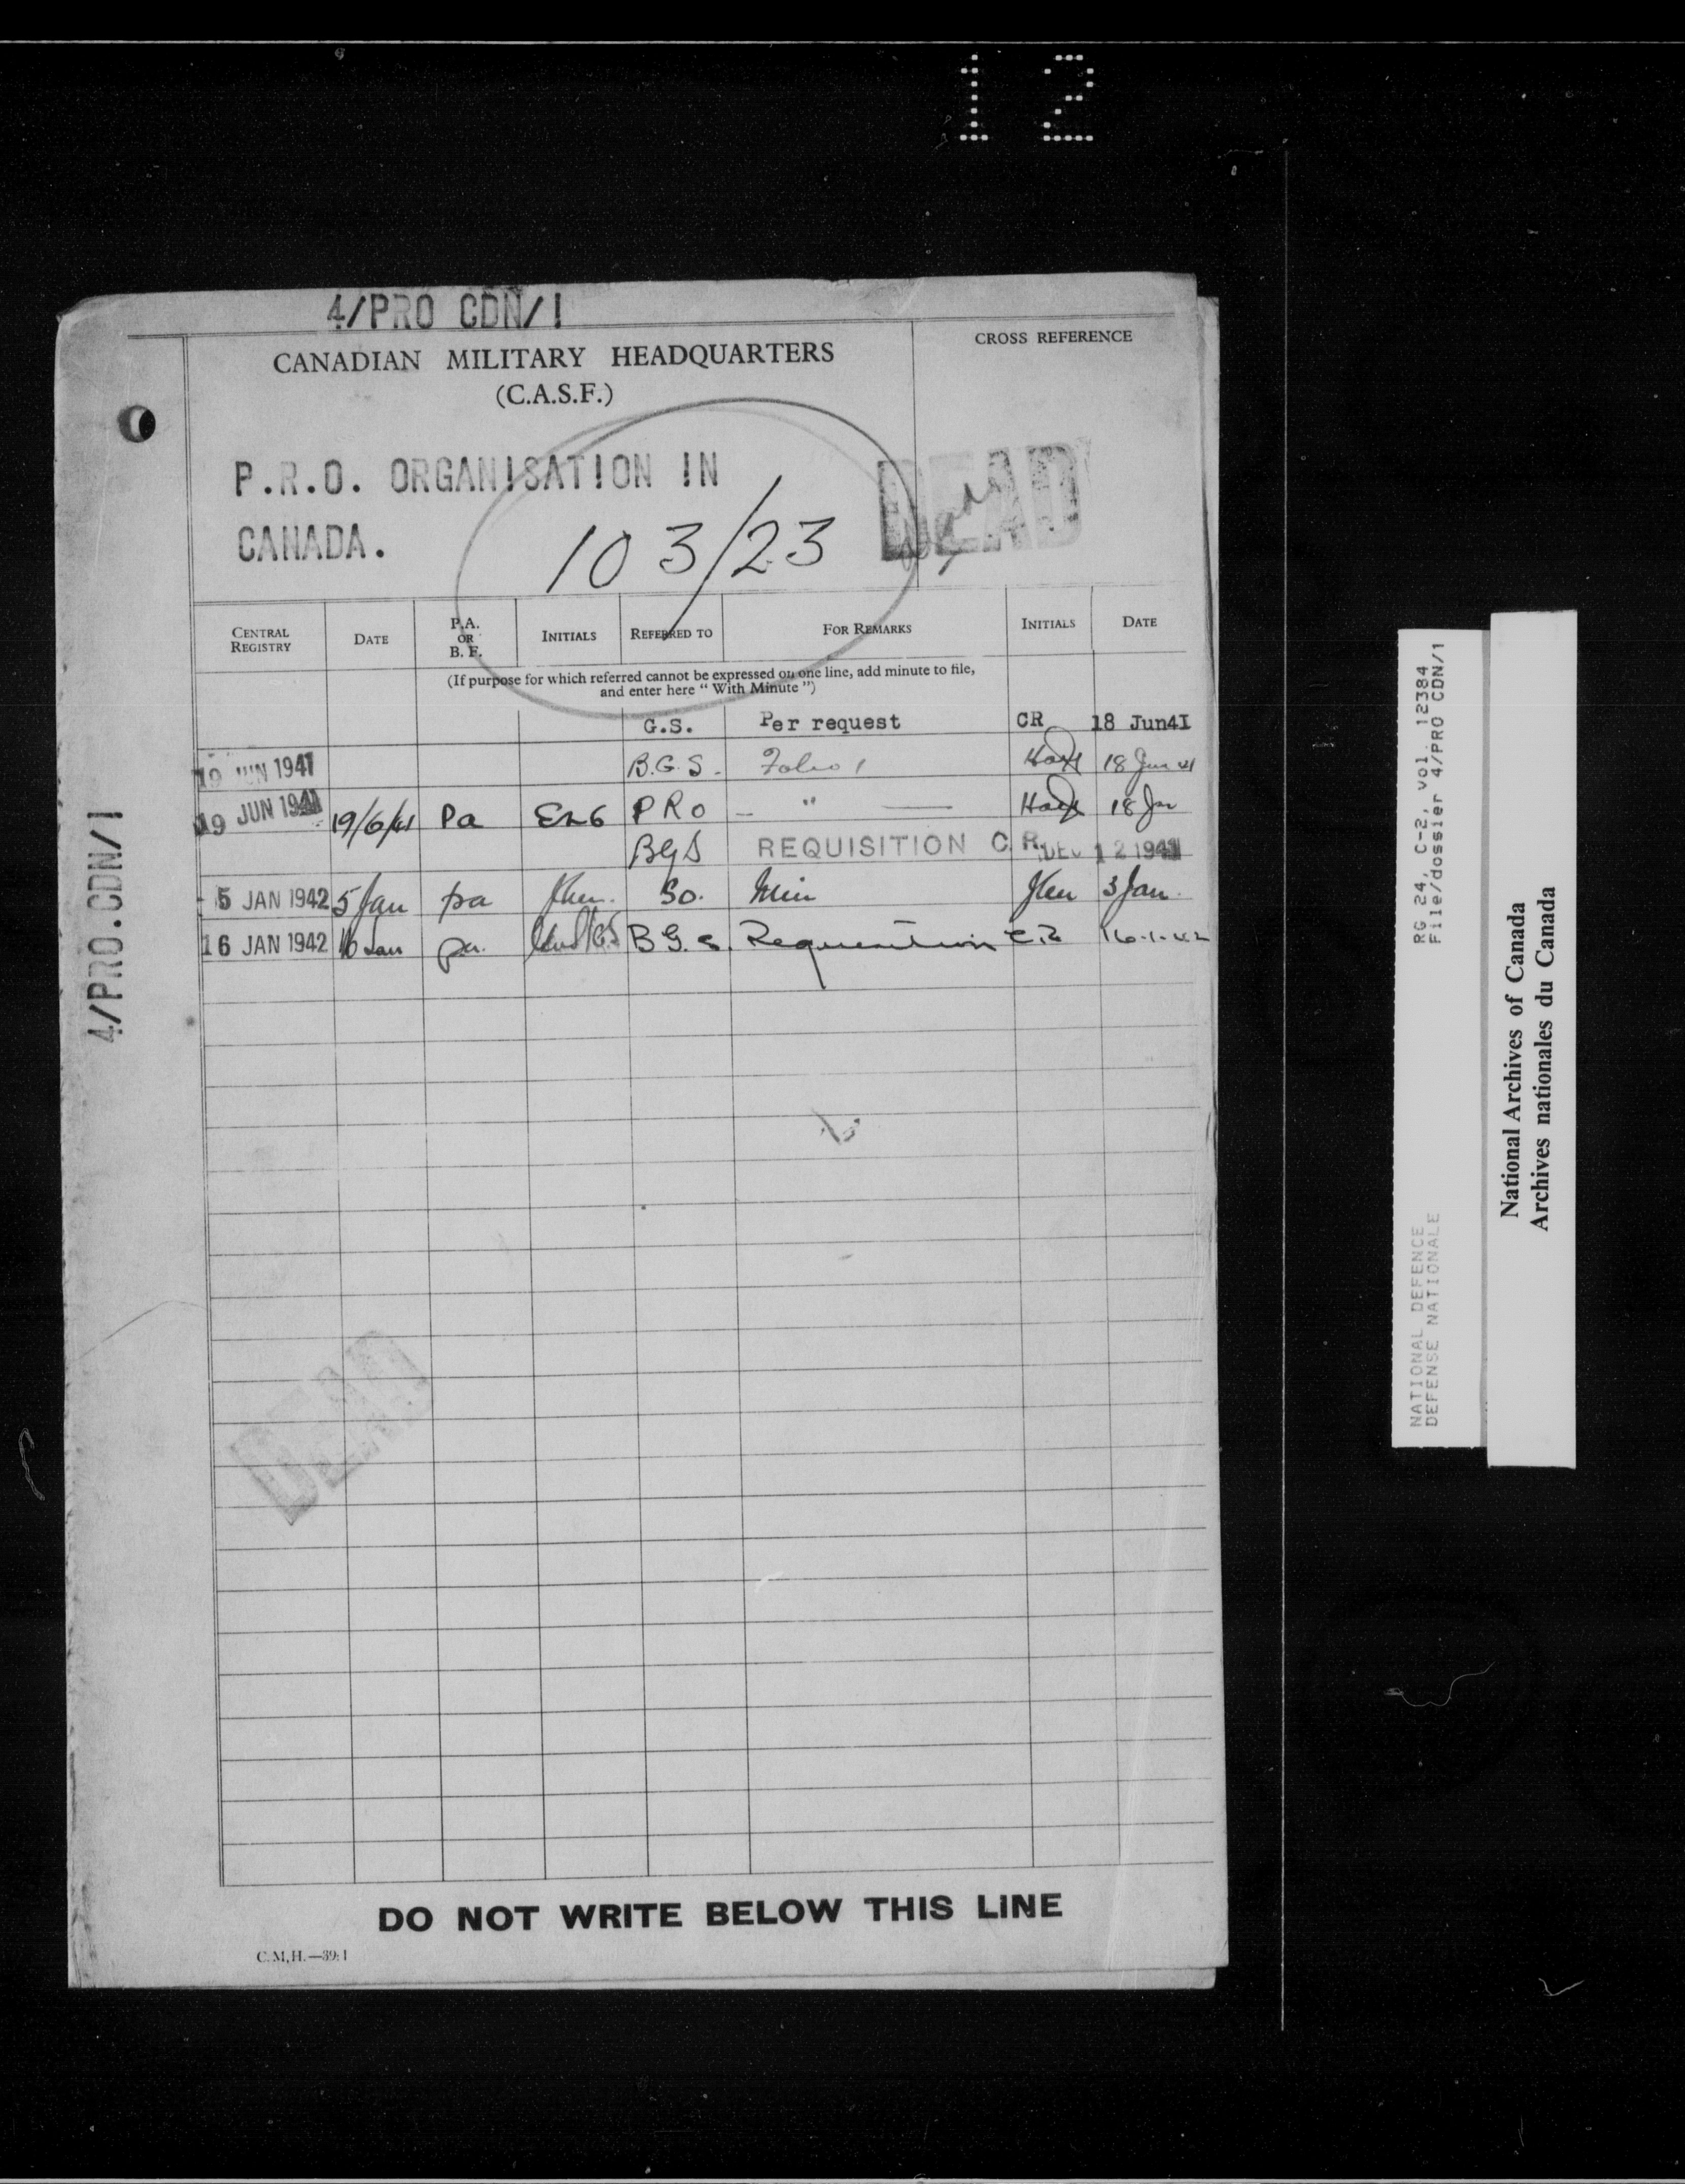 12
4/PRO CDN/1
CANADIAN MILITARY HEADQUARTERS
(C.A.S.F.)
CROSS REFERENCE
P.R.O. ORGANISATION IN
CANADA.
103/23
DEAD
CENTRAL REGISTRY DATE P.A. OR B. F. INITIALS REFERRED TO FOR REMARKS INITIALS DATE
(If purpose for which referred cannot be expressed on one line, add minute to file,
and enter here " With Minute ")
G.S. Per request CR 18 Jun41
19 JUN 1941 B.G.S. Folio 1 18 Jun 41
19 JUN 1941 19/6/41 Pa PRO " 18 Jun
BGS REQUISITION C.R. DEC 12 1941
5 JAN 1942 5 Jan pa So. Min 3 Jan.
16 JAN 1942 16 Jan pa. B G.S. Requisition C.R 16.1.42
4/PRO.CDN/1
DEAD
DO NOT WRITE BELOW THIS LINE
C.M,H.—39:1
RG 24, C-2, vol. 12384
File/dossier 4/PRO CDN/1
NATIONAL DEFENCE
DEFENSE NATIONALE
National Archives of Canada
Archives nationales du Canada